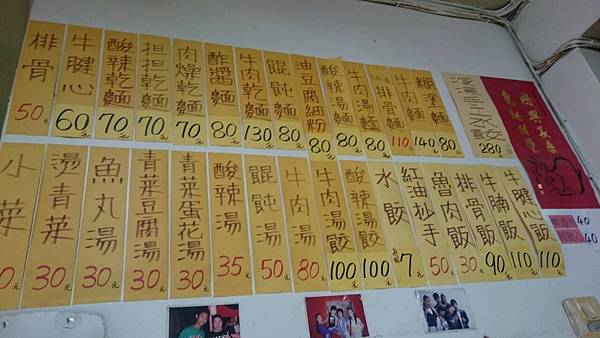 排骨 50元
牛腱心 60元
酸辣乾麵 70元
担担乾麵 70元
肉燥乾麵 70元
酢醬麵 80元
牛肉乾麵 130元
餛飩麵 80元
油豆腐細粉 80元
酸辣湯麵 80元
牛肉湯麵 80元
排骨麵 110元
牛肉麵 140元
糊塗麵 80元
水餃 280元
小菜 0元
燙青菜 30元
魚丸湯 30元
青菜豆腐湯 30元
青菜蛋花湯 30元
酸辣湯 35元
餛飩湯 50元
牛肉湯 80元
牛肉湯餃 100元
酸辣湯餃 100元
水餃 7元
紅油抄手 50元
魯肉飯 30元
排骨飯 90元
牛腩飯 110元
牛腱心飯 110元
40
40